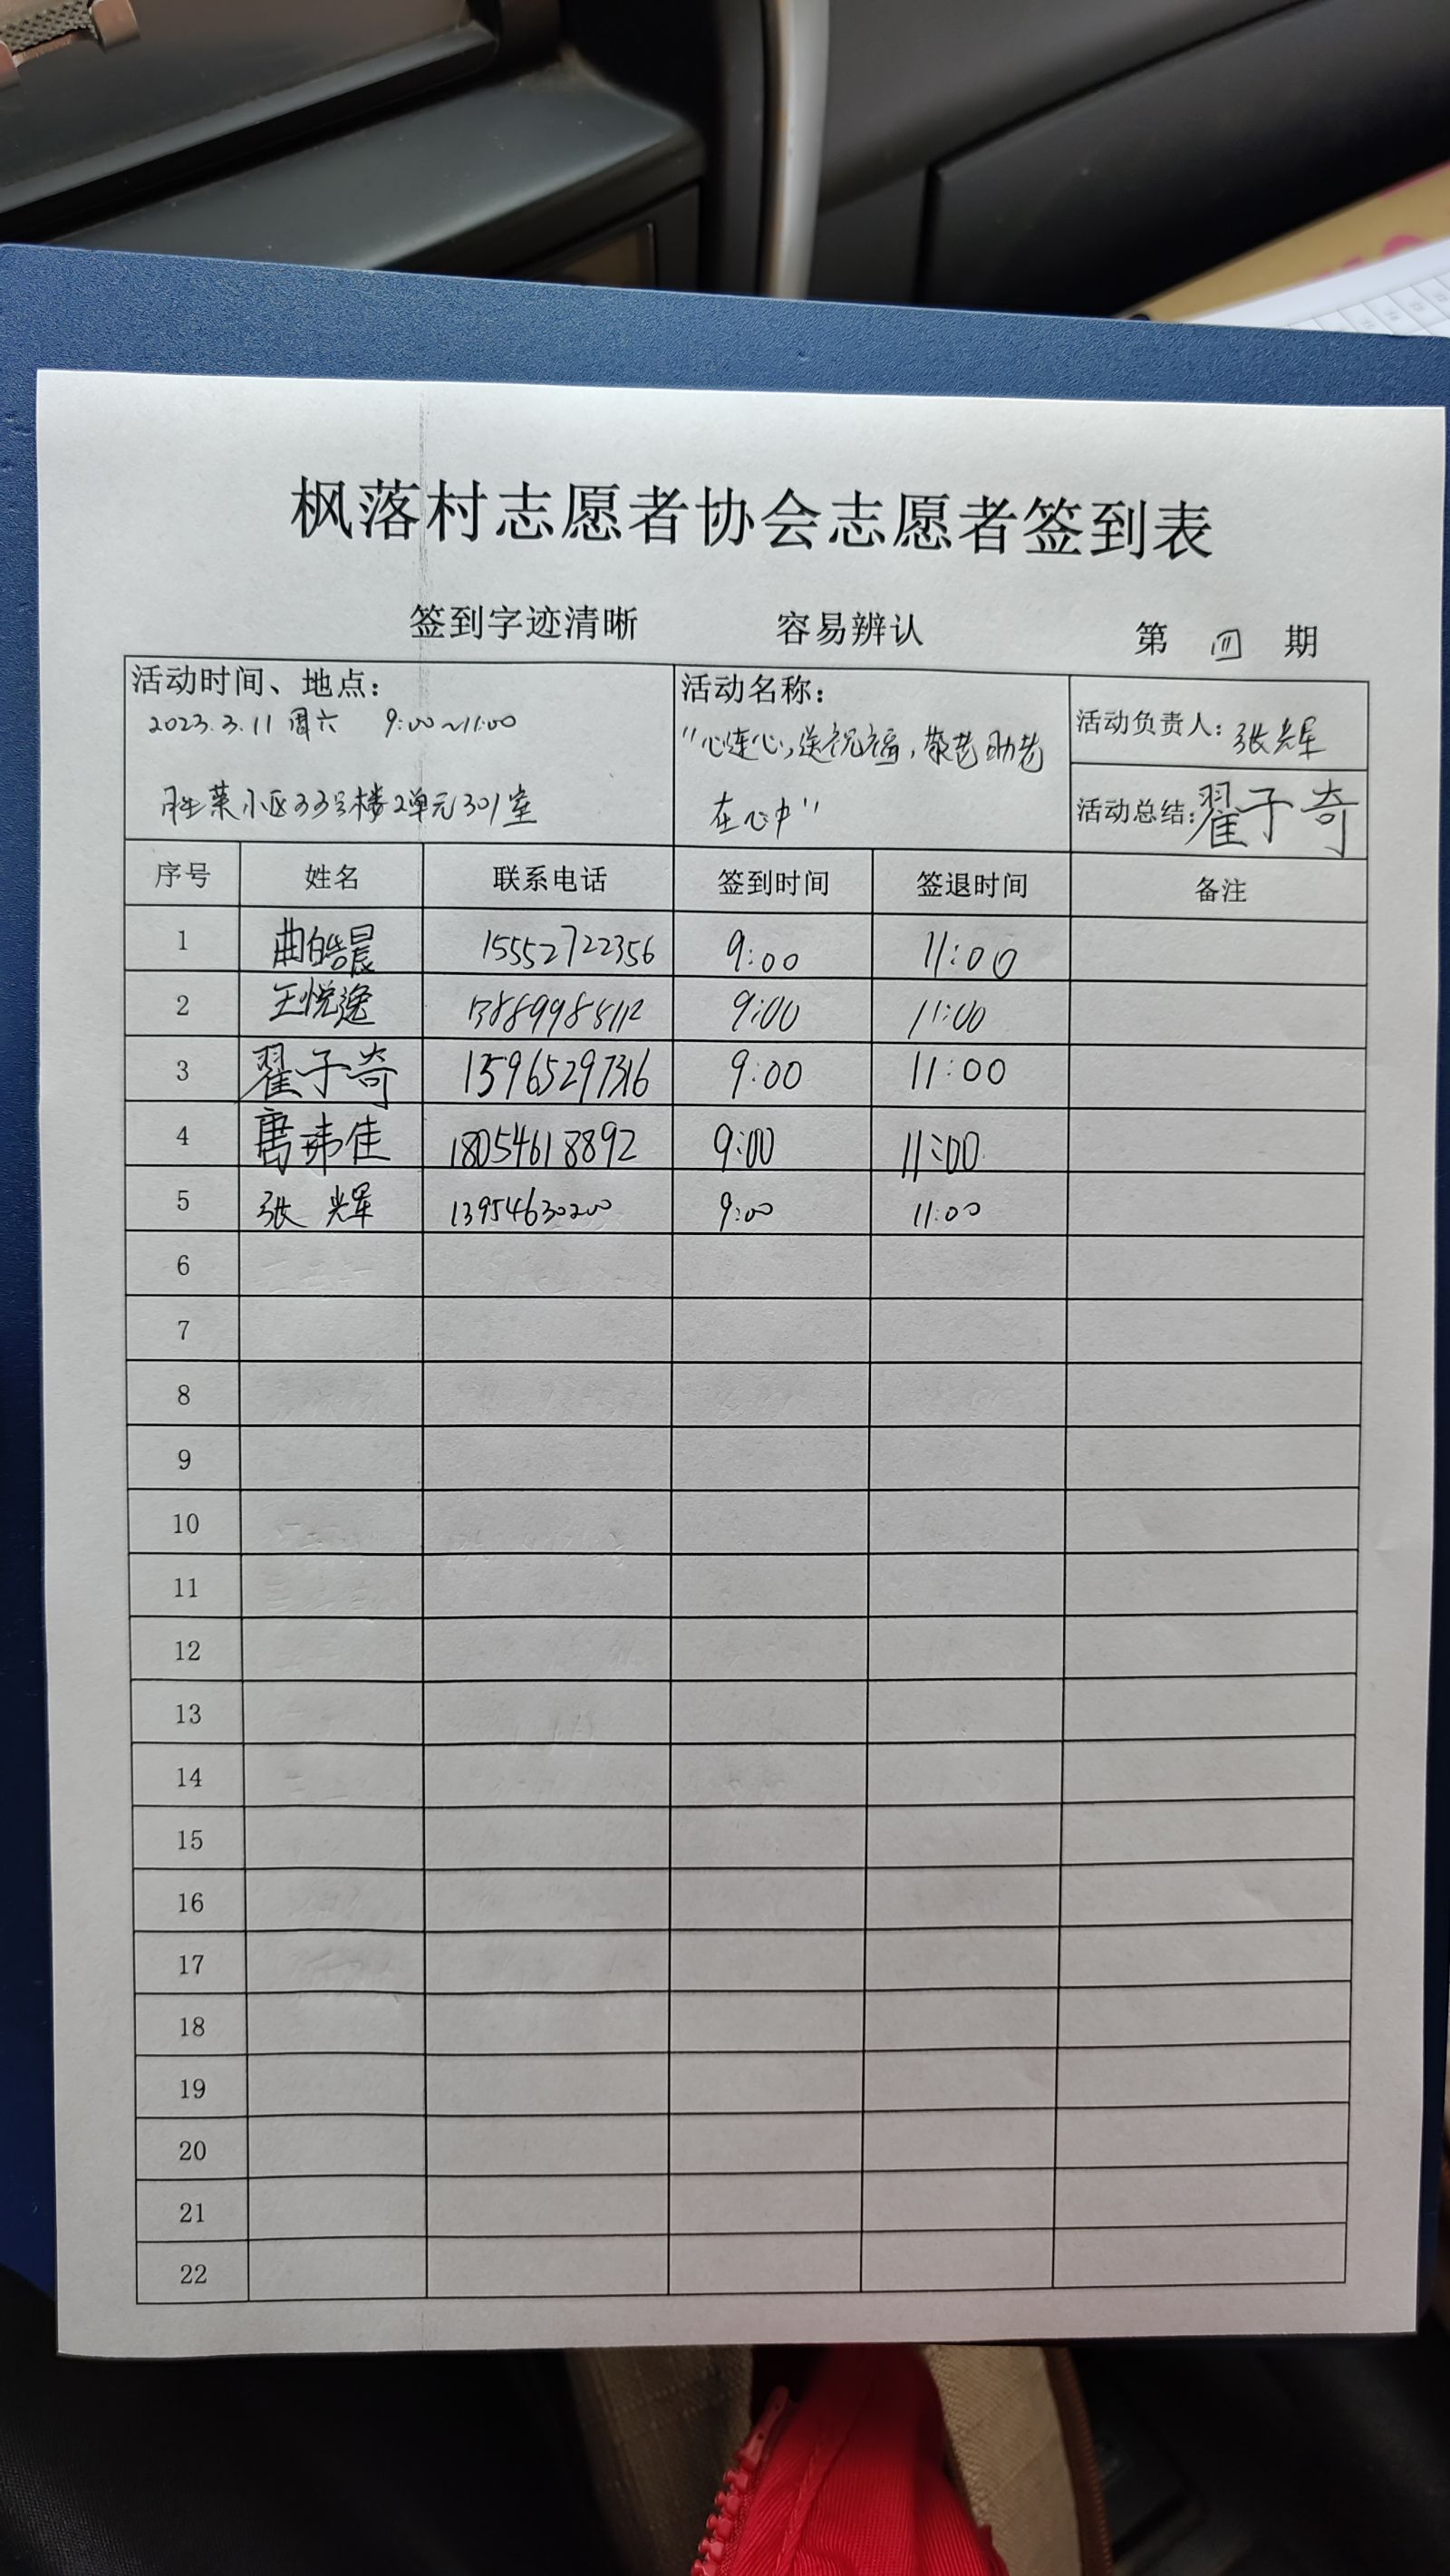 枫落村志愿者协会志愿者签到表
签到字迹清晰 容易辨认 第 四 期
活动时间、地点：
2023.3.11 周六 9:00~11:00
胜莱小区33号楼2单元301室
活动名称：
"心连心，送祝福，敬老助老
在心中"
活动负责人：张光辉
活动总结：翟子奇
序号 姓名 联系电话 签到时间 签退时间 备注
1 曲皓晨 15552722356 9:00 11:00
2 王悦逸 9:00 11:00
3 翟子奇 13965297316 9:00 11:00
4 唐玮佳 18054618892 9:00 11:00
5 张辉 13954630200 9:00 11:00
6
7
8
9
10
11
12
13
14
15
16
17
18
19
20
21
22